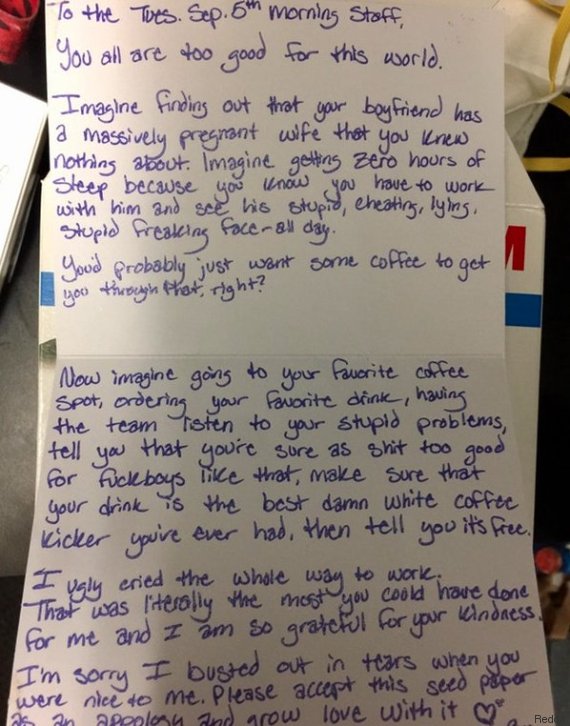 To the Tues. Sep. 5th morning Staff,
You all are too good for this world.
Imagine finding out that your boyfriend has
a massively pregnant wife that you knew
nothing about. Imagine getting zero hours of
sleep because you know you have to work
with him and see his stupid, cheating, lying,
stupid freaking face-all day.
You'd probably just want some coffee to get
you through that, right?
Now imagine going to your favorite coffee
spot, ordering your favorite drink, having
the team listen to your stupid problems,
tell you that you're sure as shit too good
for fuckboys like that, make sure that
your drink is the best damn white coffee
kicker you've ever had, then tell you it's free.
I ugly cried the whole way to work.
That was literally the most you could have done
for me and I am so grateful for your kindness.
I'm sorry I busted out in tears when you
were nice to me. Please accept this seed paper
as an apology and grow love with it ♡